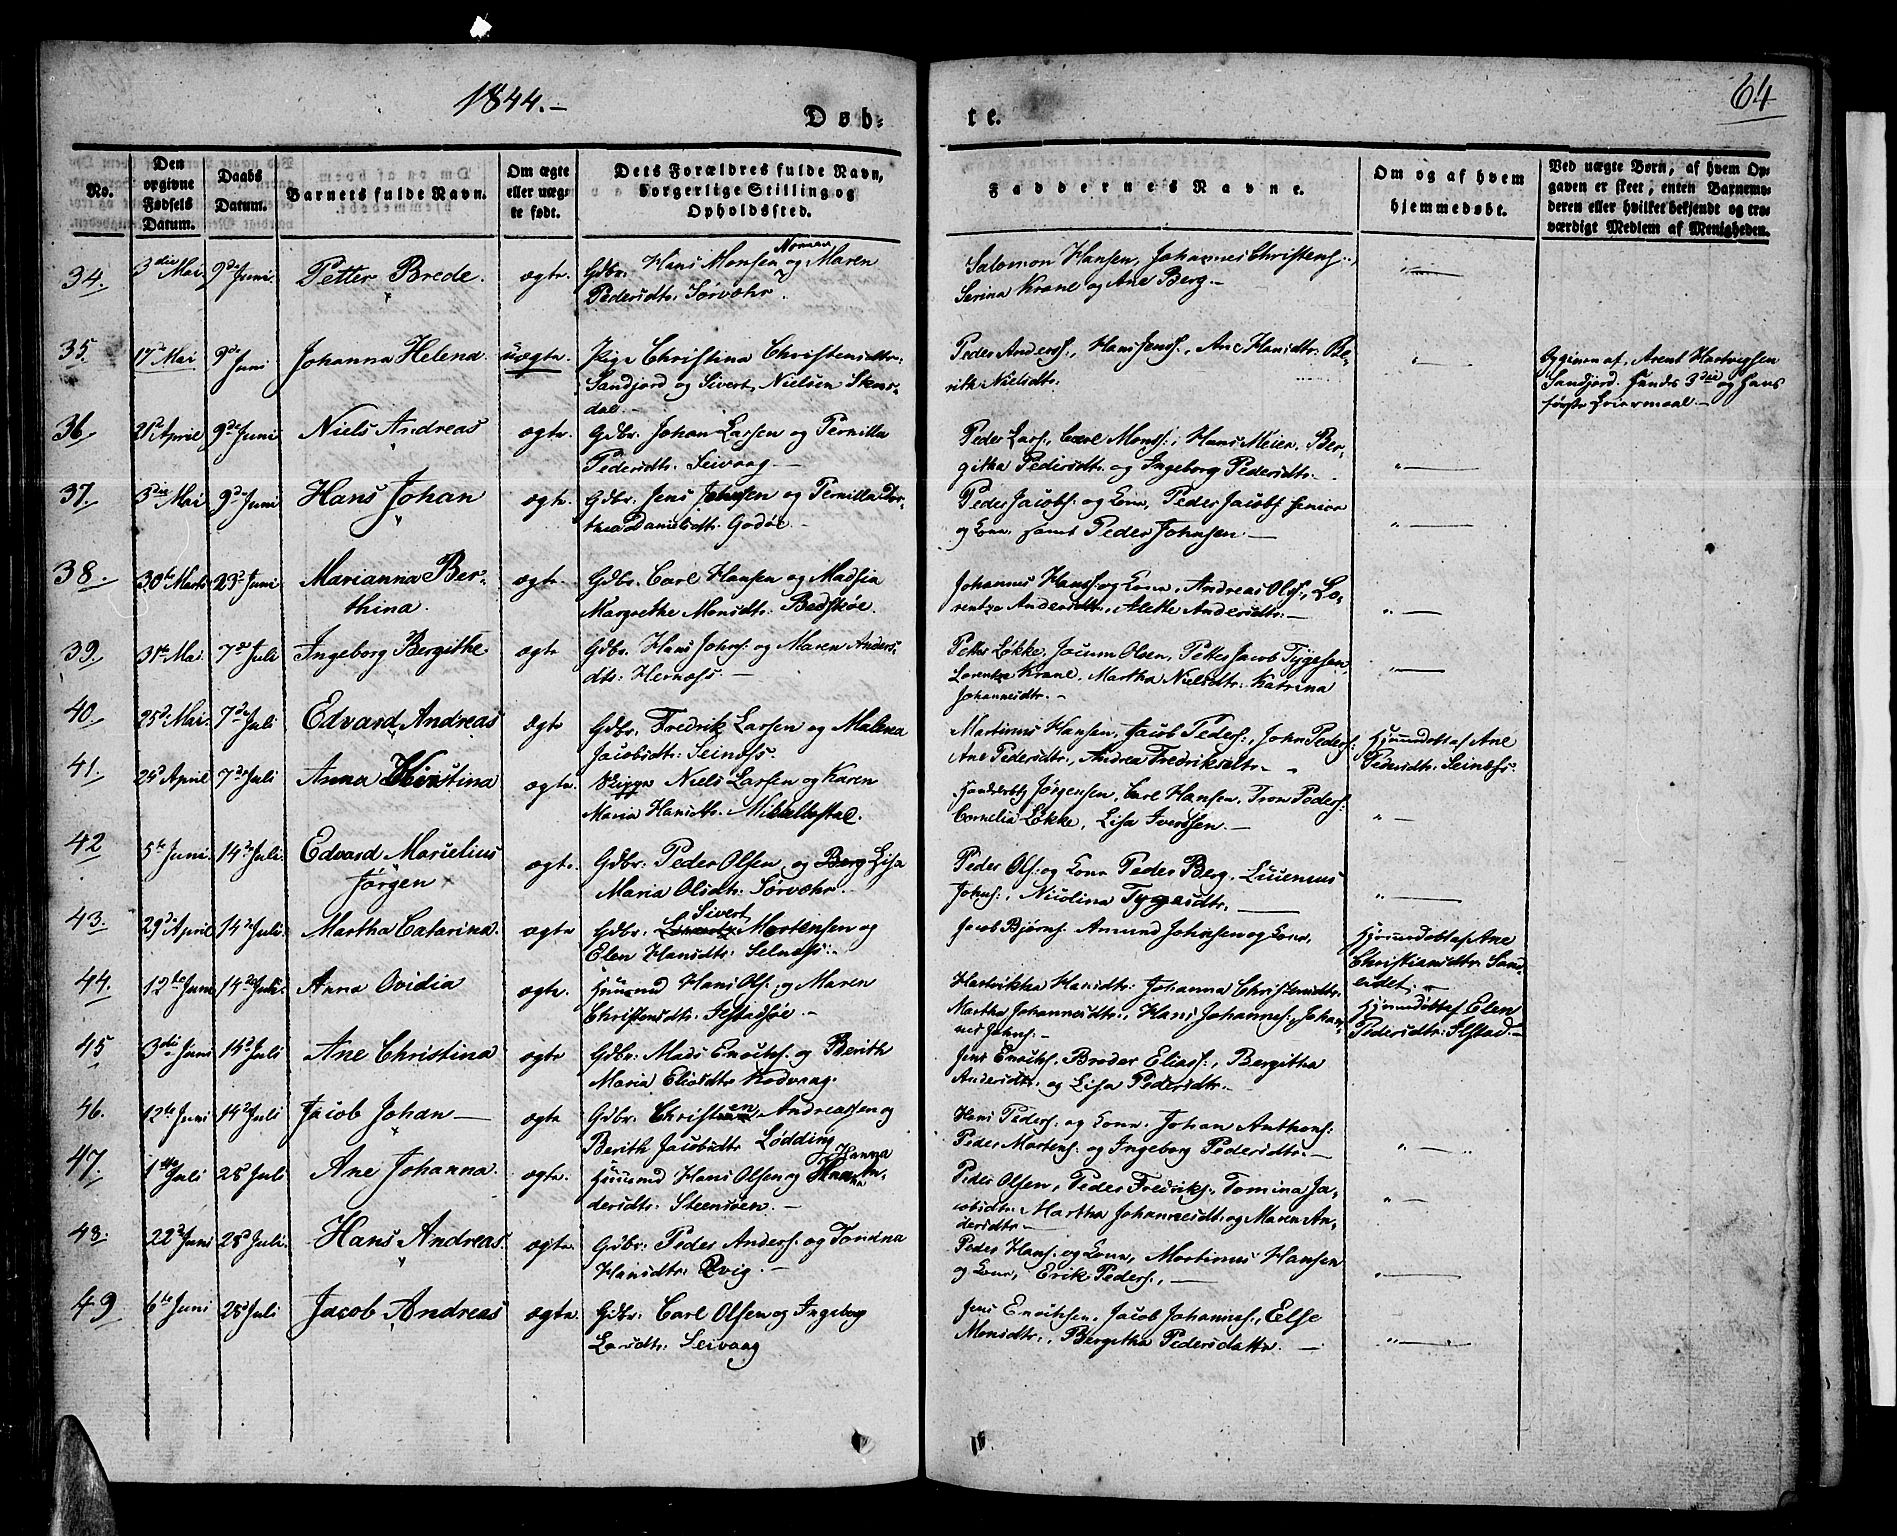 1844.-
64
Døb-
te.
No.
Den opgivne Fødsels Datum.
Daabs Datum.
Barnets fulde Navn.
Om ægte eller uægte født.
Dets Forældres fulde Navn, borgerlige Stilling og Opholdssted.
Faddernes Navne.
Om og af hvem hjemmedøbt.
Ved uægte Børn, af hvem Opgaven er skeet, enten Barnemoderen eller hvilket bekjendt og troværdigt Medlem af Menigheden.
34. 3die Mai 9de Juni Petter Brede. ægte. Gdbr: Hans Monsen og Maren
Pedersdtr: Sørvahr.
Salomon Hansen, Johannes Christens:,
Serina Krane og Ane Berg.-
35. 17d Mai 9de Juni Johanna Helena. uægte. Pige Christina Christensdtr:
Sandjord og Sivert Nielsen
dal.-
Peder Anders:, Hans Jens:, Ane Hansdtr: Be-
rith Nielsdtr:
af, Arent Hartvigsen
Sandjord. Hendes 3die og Hans
første Leiermaal.-
36. April 9de Juni Niels Andreas ægte. Gdbr: Johan Larsen og Pernilla
Pedersdtr: Seivaag.-
Peder Lars:, Carl Mons:, Hans Meier, Ber-
githa Pedersdtr: og Ingeborg Pedersdtr:-
37. 3die Mai 9de Juni Hans Johan ægte. Gdbr: Jens Johnsen og Pernilla Dor-
thea Danielsdtr: Godøe-
Peder Jacobs: og Kone, Peder Jacobs: senior
og Kone, samt Peder Johnsen-
38. 30te Marts 23d Juni Marianna Ber-
thina. ægte. Gdbr: Carl Hansen og Madsia
Margrethe Monsdtr:
Johannes Hans: og Kone, Andreas Ols:, Lo-
rentze Andersdtr:, Aletke Andersdtr:-
39. 31te Mai. 7de Juli Ingeborg Bergithe ægte Gdbr: Hans Johns: og Maren Anders-
dtr: Hernæss.-
Petter Løkke, Jocum Olsen, Petter Jacob Tygesen,
Lorentze Krane, Martha Nielsdtr: Katrina
Johannesdtr:-
40. 25d Mai. 7de Juli Edvard Andreas ægte Gdbr: Fredrik Larsen og Malena
Jacobsdtr: Seinæss.
Martinus Hansen, Jacob Peders:, John Peders:
Ane Pedersdtr:, Andrea Fredriksdtr:-
Hjemmedøbt af Ane
Pedersdtr: Seinæss.
41. 25d April 7de Juli Anna Kirstina ægte. Niels Larsen og Karen
Maria Hansdtr:
Jørgensen, Carl Hansen, Tron Peders:
Cornelia Løkke, Lisa Iverssen.-
42 5te Juni. 14de Juli. Edvard Marselius
Jørgen ægte. Gdbr: Peder Olsen, og Berg Lisa
Maria Olsdtr: Sørvahr.-
Peder Ols: og Kone Peder Berg, Lucemus
Johns:, Nicolina Tygesdtr:,-
43. 29de April 14de Juli. Martha Catarina. ægte Gdbr: Sivert Mortensen og
Elen Hansdtr: Selnæss:-
Jacob Bjørns: Amund Johnsen og Kone,
Hjemmedøbt af Ane
Christiansdtr: Sand-
eidet,-
44. 12te Juni 14de Juli. Anna Ovidia ægte. Huusmd Hans Ols:, og Maren
Christensdtr:
Hartvikka Hansdtr: Johanna Christensdtr:
Martha Johannesdtr:, Hans Johannes:, Johan-
nes Johns:-
Hjemmedøbt af Elen
Pedersdtr: Ilstad.-
45 3die Juni 14d Juli Ane Christina ægte Gdbr: Mads Enochs: og Berith
Maria Eliasdtr: Kodvaag.
Jens Enochs: Broder Elias:, Bergitha
Andersdtr: og Lisa Pedersdtr:-
46. 12te Juni 14d Juli Jacob Johan- ægte Gdbr: Christen Andreassen og
Berith Jacobsdtr: Lødding
Hans Peders: og Kone. Johan Anthons:
Peder Mortens: og Ingeborg Pedersdtr:-
47. 1ste Juli 28d Juli Ane Johanna. ægte. Huusmd Hans Olsen og Hanna An-
dersdtr: Steensøen.-
Peder Olsen, Peder Fredriks:, Tomina Ja-
cobsdtr: Martha Johannesdtr: og Maren An-
dersdtr:-
48: 22d Juni 28d Juli. Hans Andreas. ægte. Gdbr: Peder Anders: og
Hansdtr: -
Peder Hans: og Kone, Mortinus Hansen
og Kone, Erik Peders:,-
49 6te Juni 28d Juli Jacob Andreas ægte. Gdbr: Carl Olsen og Ingeborg
Larsdtr: Seivaag
Jens Enochsen, Jacob Johannes:, Else
Monsdtr:, Bergitha Pedersdatter.-